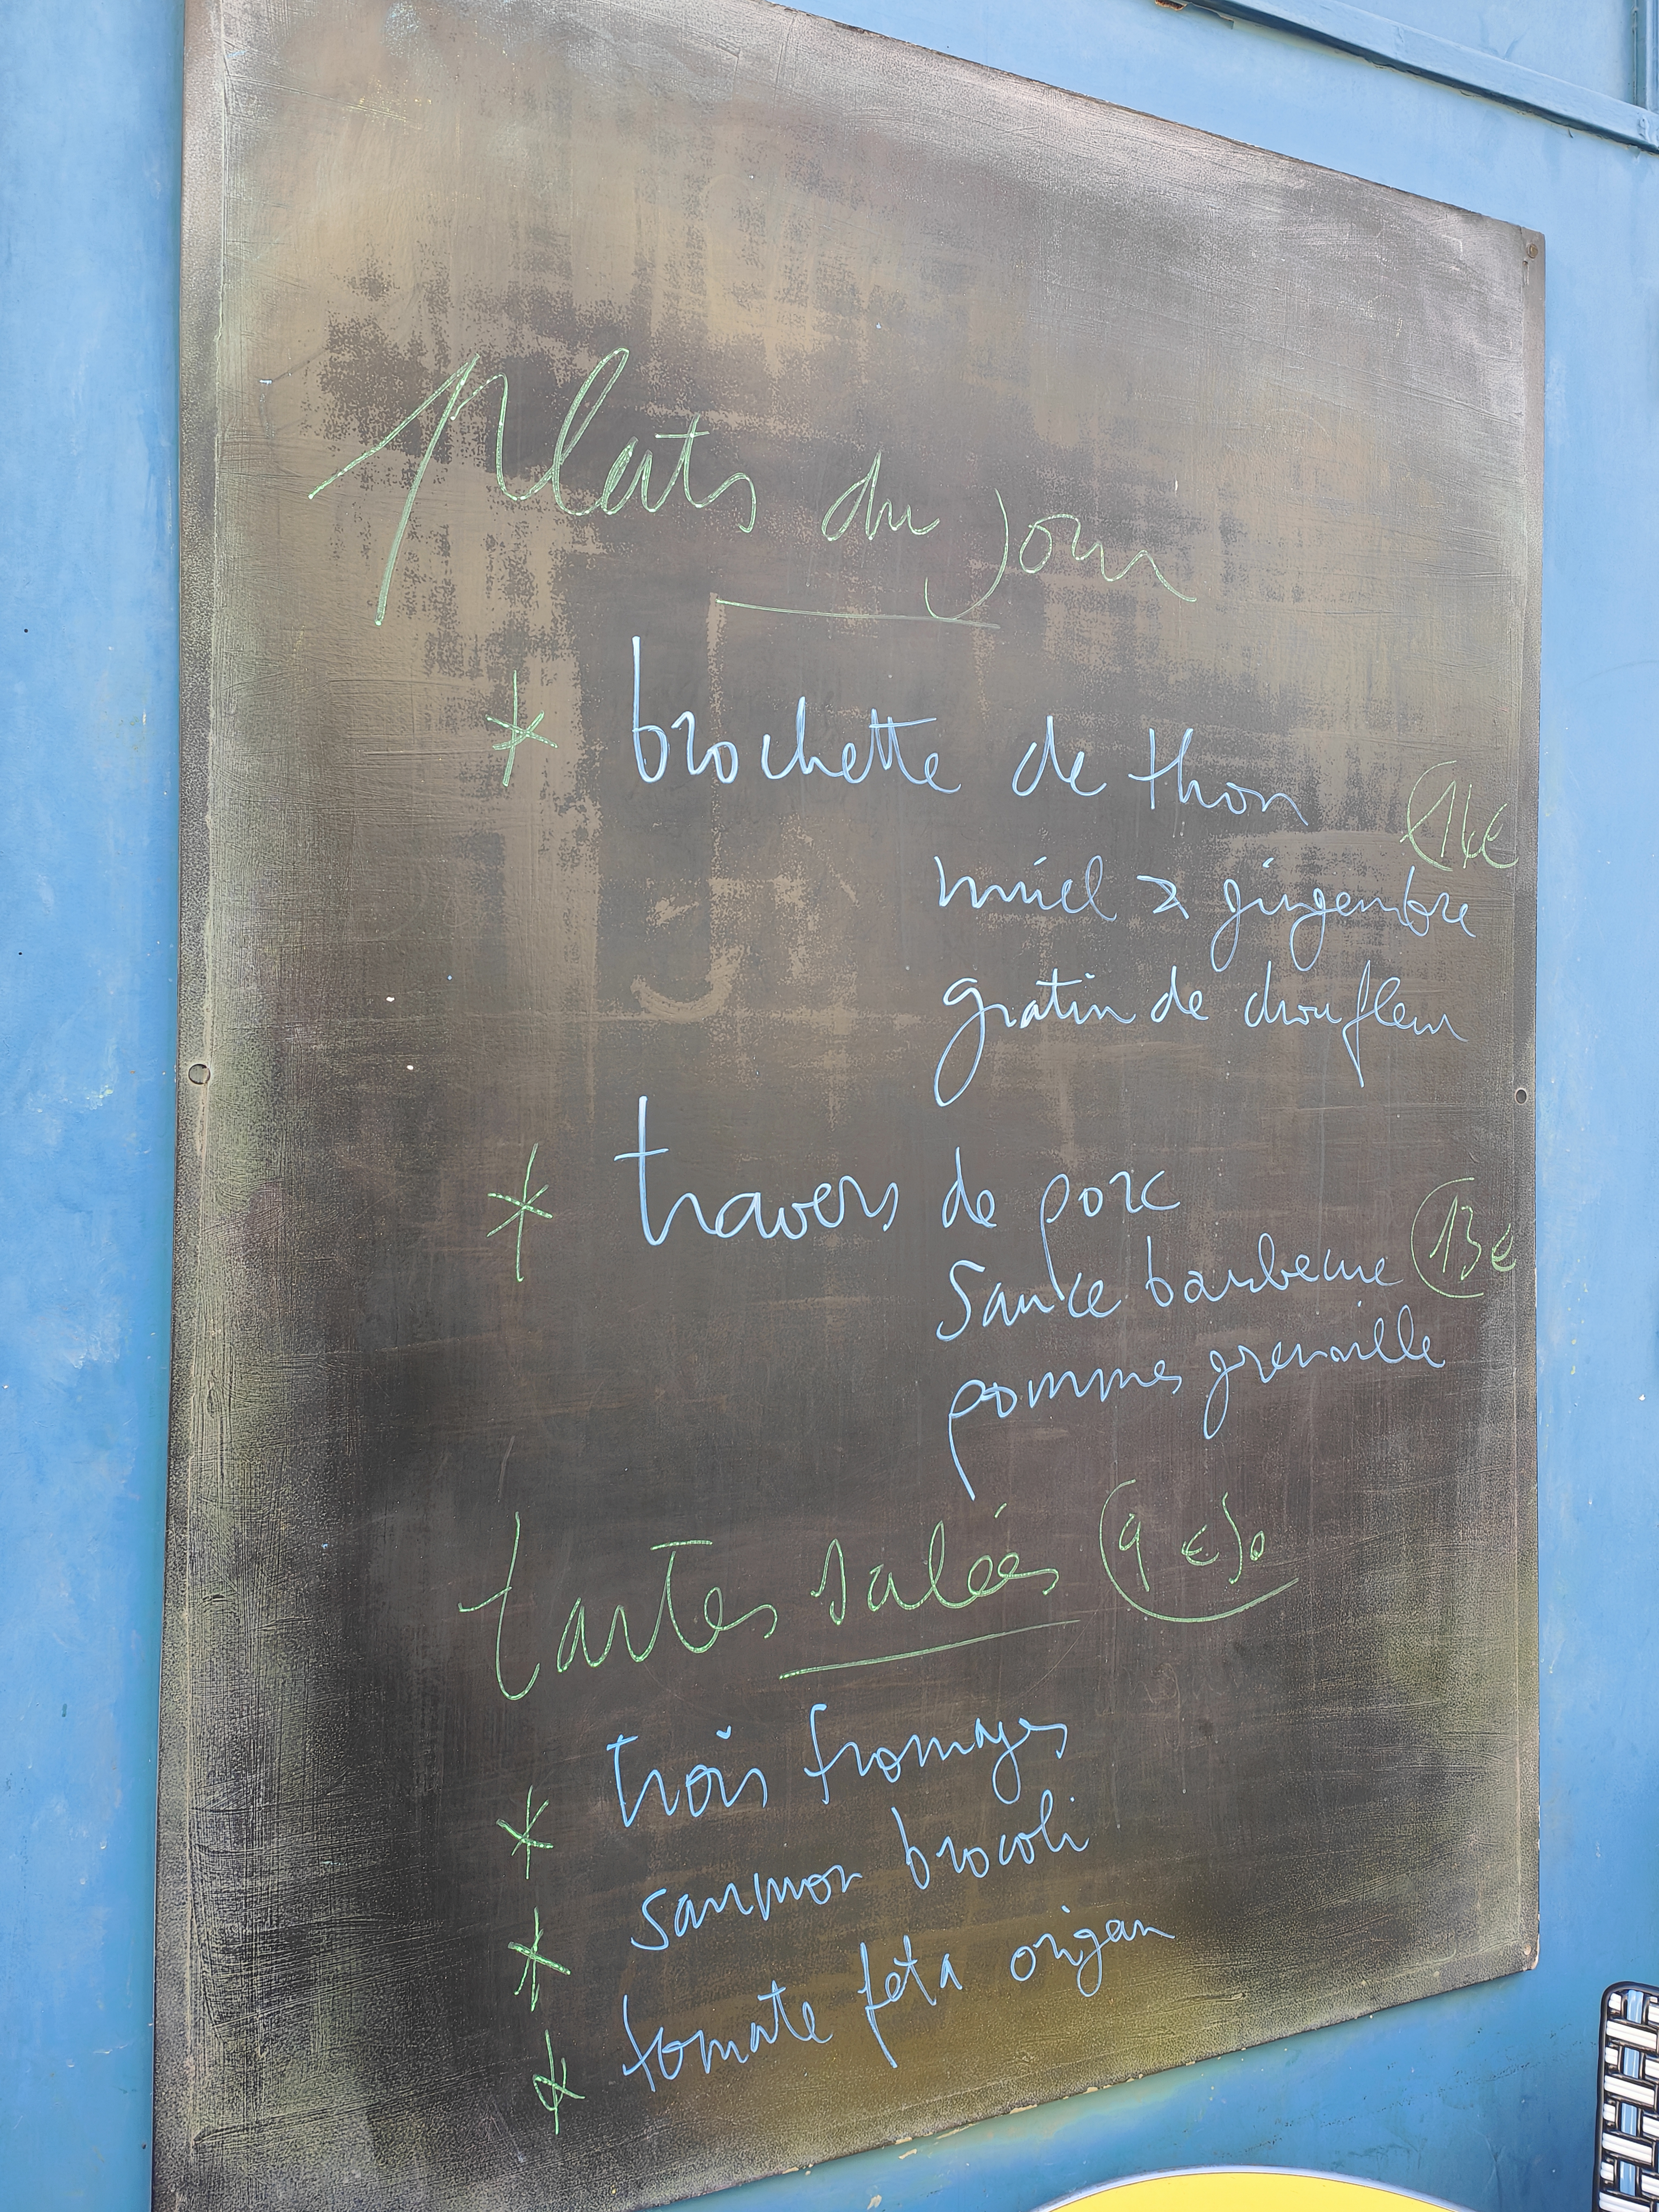 plats du jour
* brochette de thon
14€
miel & gingembre
gratin de chou fleur
* travers de porc
sauce barbecue 13€
pommes grenaille
tartes salées (9€50
* trois fromages
* saumon brocoli
* tomate feta origan